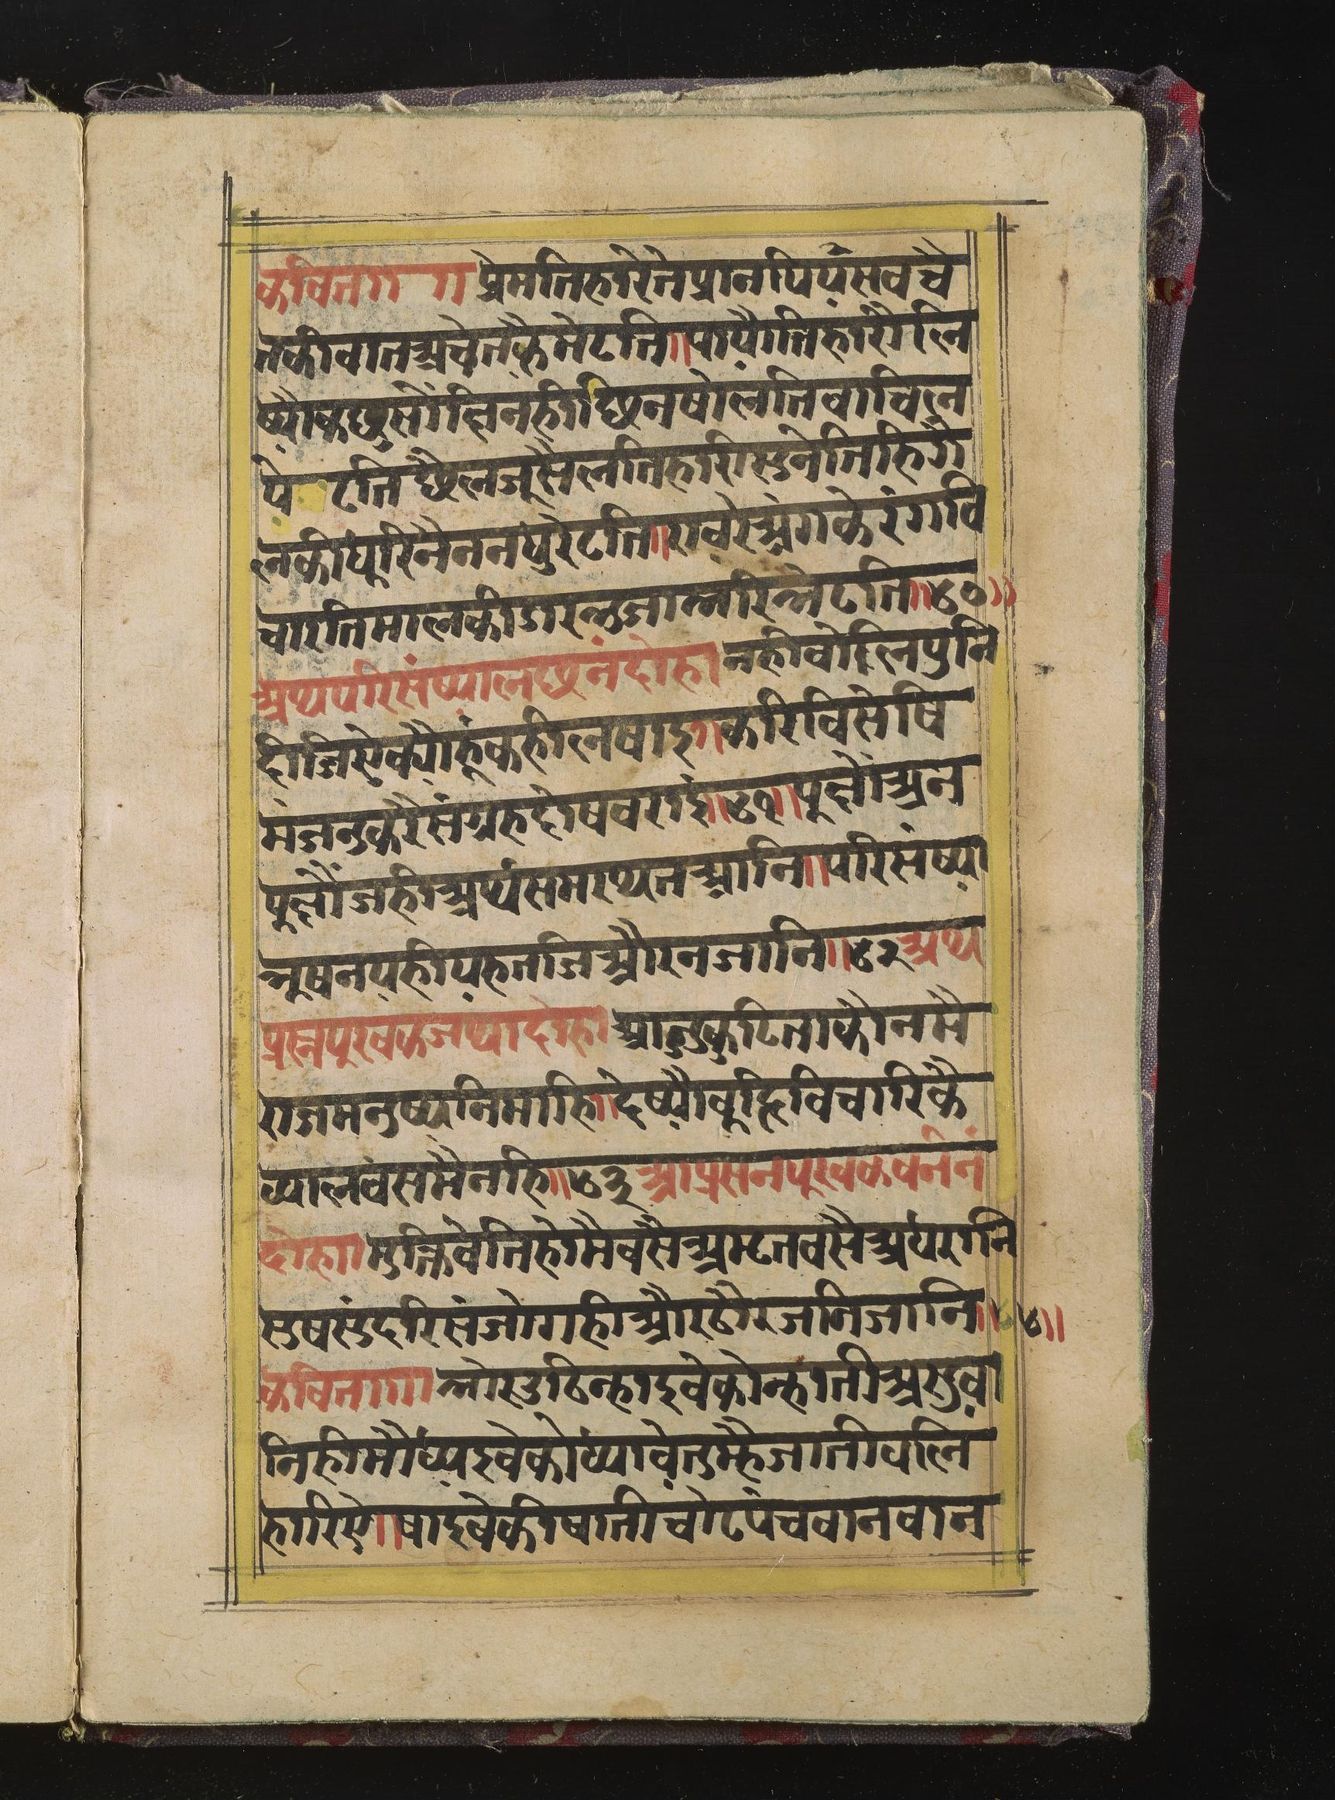 कवित्त ॥ ॥ प्रेमतिहारेनेप्रानपियेसवचै
नकीवातअचेतकैमेटति ॥ पापीतिहारीलि
ष्यौकछुसोंलिनहीछिनषोलतिवाचिल
पेटति छैलजूसैलतिहारीसुनेतिहिगै
लकीधूरिनैननधुरेटति ॥ रावरेअंगकेरंगवि
चारतिमालकीडारभुजाभरिभेटति ॥ ४० ॥
अथपरिसंष्यालछनंदोहा नहीवोलिपुनि
दीजिऐक्यौहूंकहीलषाइ ॥ करिविसेषि
मंजनुकरैसंग्रहदोषवराइ ॥ ४१ ॥ पूछोअन
पूछौंजहीअर्थसमाथनआनि ॥ परिसंष्या
भूषनपहीपहतजिऔरनजानि ॥ ४२ अथ
प्रस्नपूरवकजथादोहा आजुकुटिताकौनमै
राजमनुष्यनिमाहि ॥ देष्यौवूझिविचारिकै
व्यालवंसमैनहि ॥ ४३ अप्रसनपूरवकवर्ननं
दोहा ॥ मुक्तिवेनिहीमैवसैअमृतवसैअधरानि
सुषसुंदरिसंजोगहीऔरठौरजनिजानि ॥ ४४ ॥
कवित्त ॥ ॥ भोरउठिन्हाइवेकोन्हातीअसुवा
निहीमौध्यइवेकोध्यावेतुम्हैजातीवलि
हारिऐ ॥ षाइवेकीषातीचोटपंचवानवान